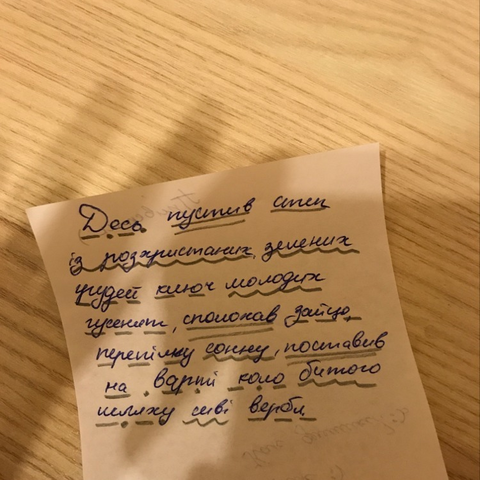 Десь пустив степ
із розхристаних зелених
грудей ключ молодих
гусенят, сполохав зайця,
перепілку сонну, поставив
на варті коло битого
шляху сиві верби